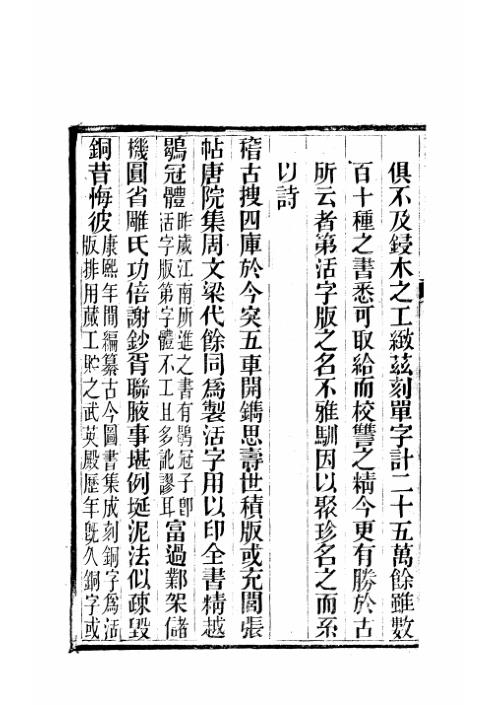 俱不及鋟木之工緻茲刻單字計二十五萬餘雖數
百十種之書悉可取給而校讐之精今更有勝於古
所云者第活字版之名不雅馴因以聚珍名之而系
以詩
稽古搜四庫於今突五車開鐫思壽世積版或充閭張
帖唐院集周文梁代餘同為製活字用以印全書精越
鶡冠體昨歲江南所進之書有鶡冠子卽
活字版第字體不工且多訛謬耳富過鄴架儲
機圓省雕氏功倍謝鈔胥聯腋事堪例埏泥法似疎毀
銅昔悔彼康熙年間編纂古今圖書集成刻銅字為活
版排用蕆工貯之武英殿歷年旣久銅字或